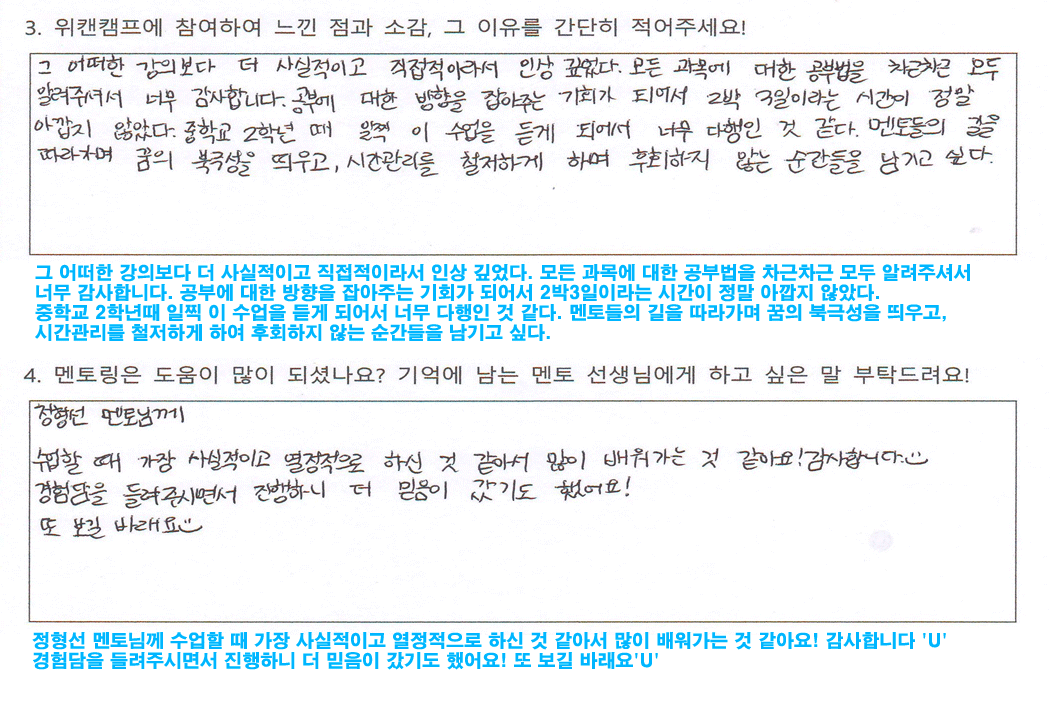 3. 위캔캠프에 참여하여 느낀 점과 소감, 그 이유를 간단히 적어주세요!
그 어떠한 강의보다 더 사실적이고 직접적이라서 인상 깊었다. 모든 과목에 대한 공부법을 차근차근 모두
알려주셔서 너무 감사합니다. 공부에 대한 방향을 잡아주는 기회가 되어서 2박 3일이라는 시간이 정말
아깝지 않았다. 중학교 2학년 때 일찍 이 수업을 듣게 되어서 너무 다행인 것 같다. 멘토들의 길을
따라가며 꿈의 북극성을 띄우고, 시간관리를 철저하게 하며 후회하지 않는 순간들을 남기고 싶다.
그 어떠한 강의보다 더 사실적이고 직접적이라서 인상 깊었다. 모든 과목에 대한 공부법을 차근차근 모두 알려주셔서
너무 감사합니다. 공부에 대한 방향을 잡아주는 기회가 되어서 2박3일이라는 시간이 정말 아깝지 않았다.
중학교 2학년때 일찍 이 수업을 듣게 되어서 너무 다행인 것 같다. 멘토들의 길을 따라가며 꿈의 북극성을 띄우고,
시간관리를 철저하게 하여 후회하지 않는 순간들을 남기고 싶다.
4. 멘토링은 도움이 많이 되셨나요? 기억에 남는 멘토 선생님에게 하고 싶은 말 부탁드려요!
정형선 멘토님께
수업할 때 가장 사실적이고 열정적으로 하신 것 같아서 많이 배워가는 것 같아요! 감사합니다
경험담을 들려주시면서 진행하니 더 믿음이 갔기도 했어요!
또 보길 바래요
정형선 멘토님께 수업할 때 가장 사실적이고 열정적으로 하신 것 같아서 많이 배워가는 것 같아요! 감사합니다 'U'
경험담을 들려주시면서 진행하니 더 믿음이 갔기도 했어요! 또 보길 바래요'U'